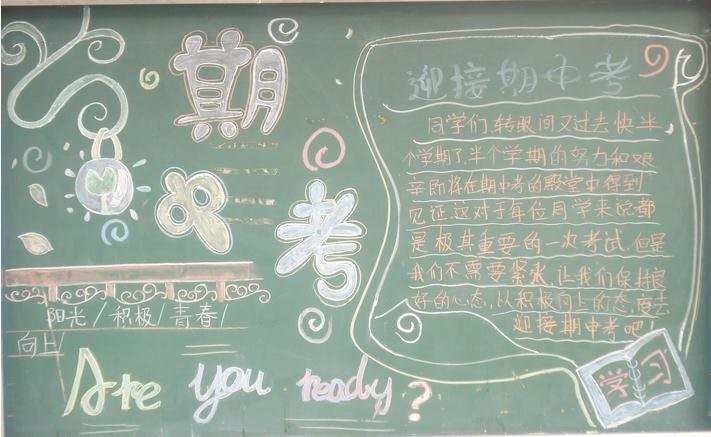 期
中
考
阳光/积极/青春/
向上/
Are you ready?
迎接期中考
同学们,转眼间又过去快半
个学期了,半个学期的努力和艰
辛即将在期中考的殿堂中得到
见证,这对于每位同学来说都
是极其重要的一次考试.但是
我们不需要紧张,让我们保持良
好的心态,以积极向上的态度去
迎接期中考吧!
学习